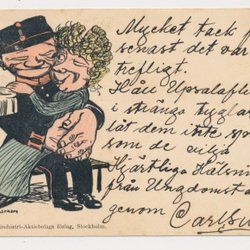 Mycket tack
senast det var
trefligt.
Håll Upsalafli
i stränga tyglar
låt dem inte spr
som de vilja
Hjärtliga Helsni
från Ungdomst
genom Carl
Industri-Aktiebolags förlag, Stockholm.